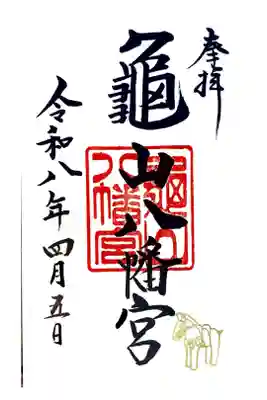 奉拝
龜山八幡宮
龜山八幡宮
令和八年四月五日